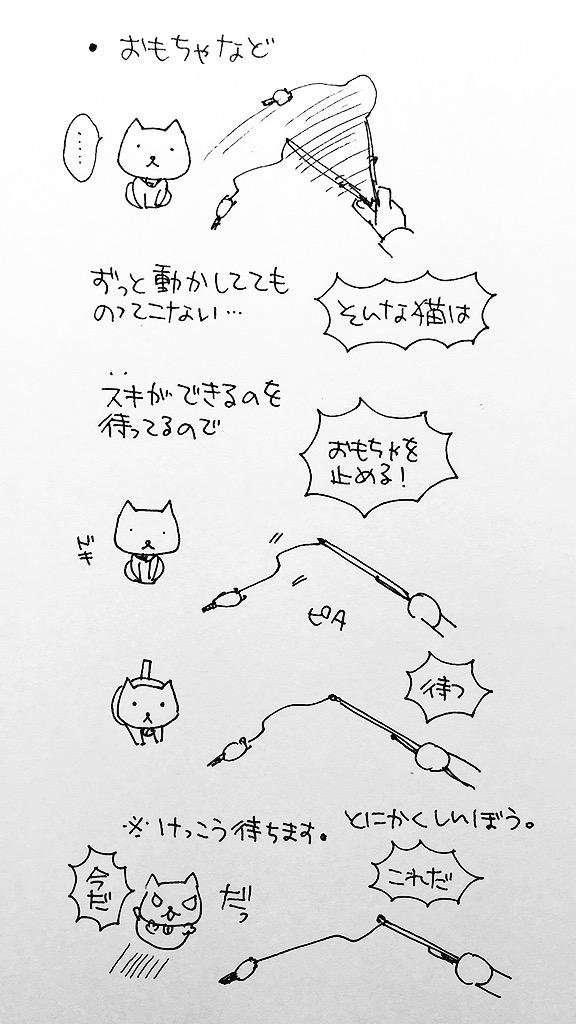 ・おもちゃなど
……
ずっと動かしてても
のってこない…
そんな猫は
スキができるのを
待ってるので
おもちゃを
止める!
ドキ
ピタ
待つ
※けっこう待ちます。
とにかくしんぼう。
今だ
だっ
これだ